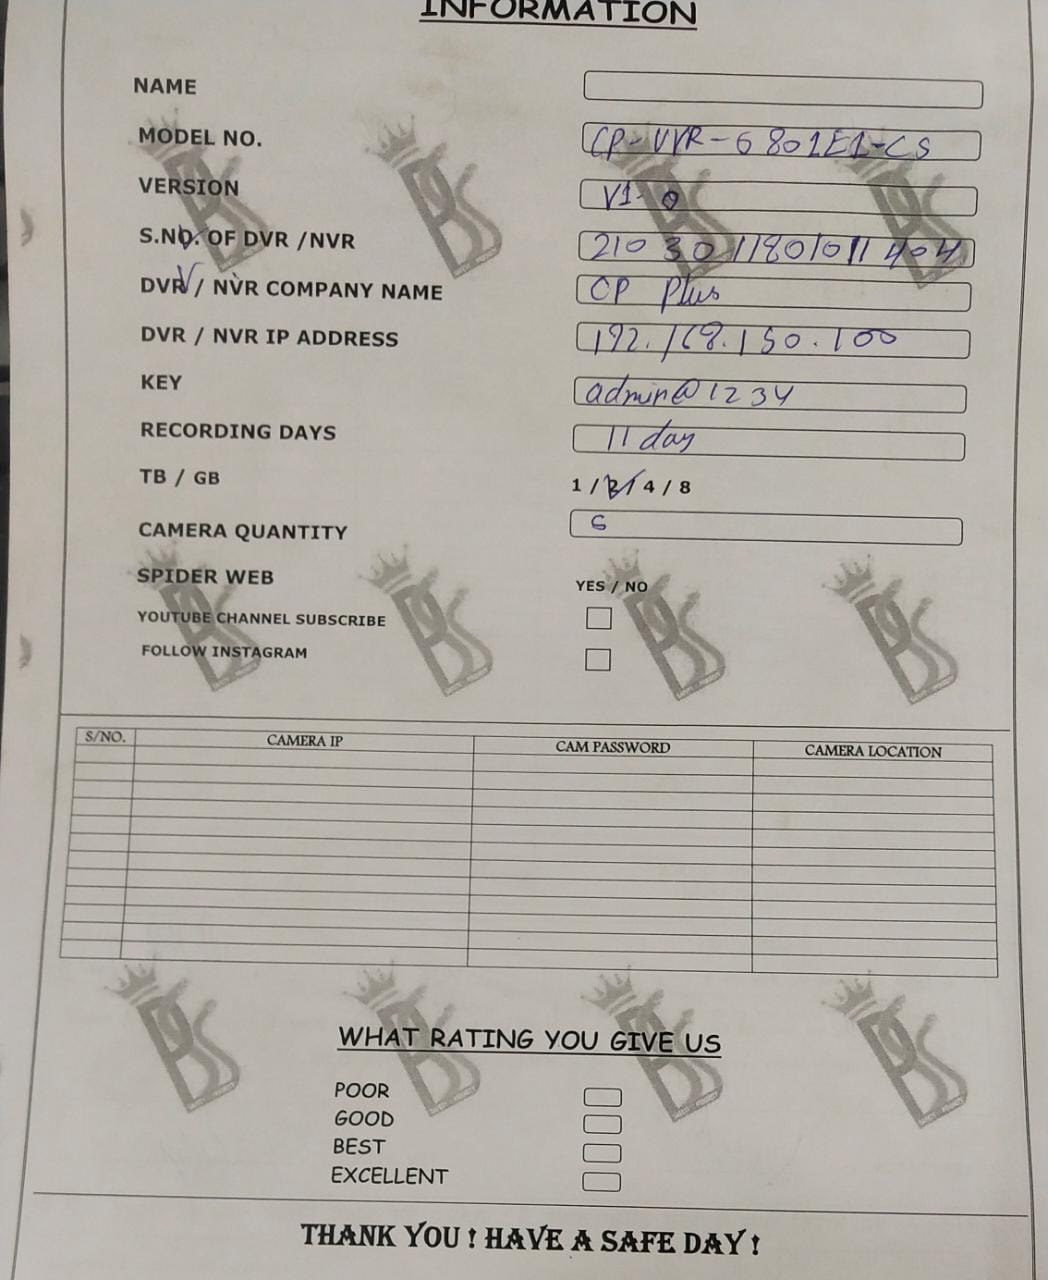 INFORMATION
NAME
MODEL NO. CP-UVR-0801E1-CS
VERSION V1.0
S.NO. OF DVR /NVR
DVR / NVR COMPANY NAME CP Plus
DVR / NVR IP ADDRESS 192.168.150.100
KEY admin@1234
RECORDING DAYS 11 day
TB / GB 1 / 2 / 4 / 8
CAMERA QUANTITY 6
SPIDER WEB YES / NO
YOUTUBE CHANNEL SUBSCRIBE
FOLLOW INSTAGRAM
S/NO. CAMERA IP CAM PASSWORD CAMERA LOCATION
WHAT RATING YOU GIVE US
POOR
GOOD
BEST
EXCELLENT
THANK YOU ! HAVE A SAFE DAY !